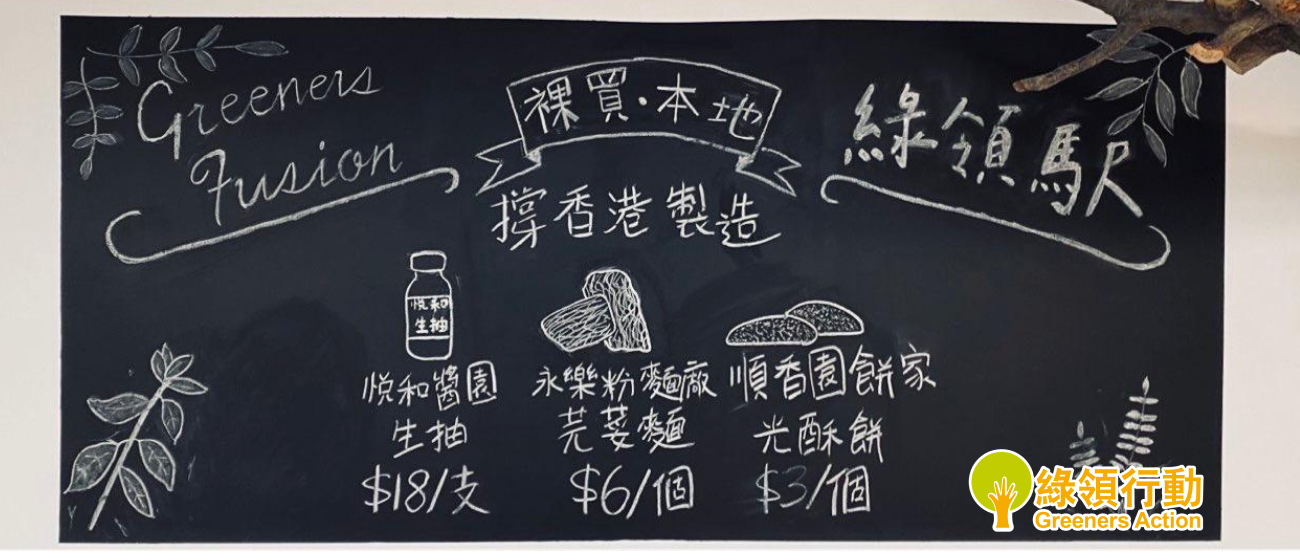 Greeners
Fusion
裸買·本地
撐香港製造
綠領駅
悅和
生抽
悅和醬園
生抽
$18/支
永樂粉麵廠
芫荽麵
$6/個
順香園餅家
光酥餅
$3/個
綠領行動
Greeners Action